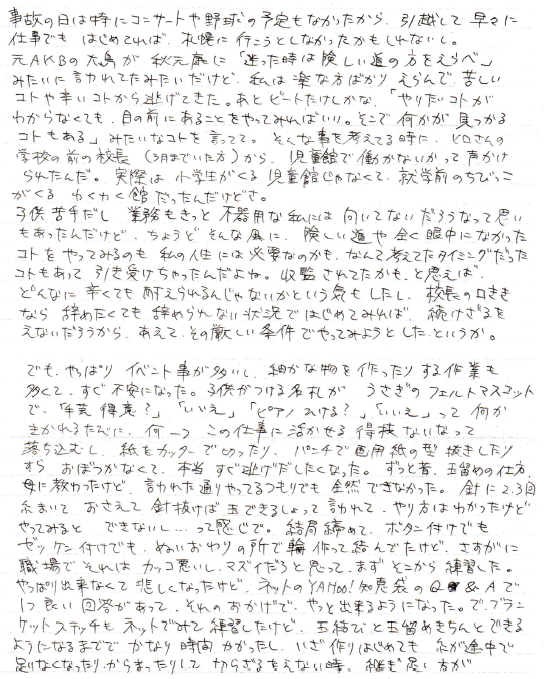 事故の日は特にコンサートや野球の予定もなかったから、引越して早々に
仕事でも はじめてれば、札幌に行こうとしなかったかもしれないし。
元AKBの大島が 秋元康に「迷った時は険しい道の方をえらべ」
みたいに言われてたみたいだけど、私は楽な方ばかり えらんで、苦しい
コトや辛いコトから逃げてきた。あとビートたけしかな、「やりたいコトが
わからなくても、目の前にあることをやってみればいい。そこで何かが見つかる
コトもある」みたいなコトを言ってて。そんな事を考えてる時に、ヒロさんの
学校の前の校長(3月までいた方)から、児童館で働かないかって声かけ
られたんだ。実際は小学生がくる児童館じゃなくて、就学前のちびっこ
がくる わくわく館だったんだけどさ。
子供苦手だし 業務もきっと不器用な私には向いてないだろうなって思い
もあったんだけど、ちょうどそんな風に、険しい道や全く眼中になかった
コトをやってみるのも 私の人生には必要なのかも、なんて考えてたタイミングだった
コトもあって 引き受けちゃったんだよね。収監されてたかもと思えば、
どんなに辛くても耐えられるんじゃないかという気もしたし、校長の口きき
なら 辞めたくても辞められない状況ではじめてみれば、続けざるを
えないだろうから、あえて、その厳しい条件でやってみようとした、というか。

でも、やっぱり イベント事が多いし、細かな物を作ったりする作業も
多くて、すぐ不安になった。子供がつける名札が うさぎのフェルトマスコット
で、「手芸得意?」、「いいえ」「ピアノひける?」「いいえ」って 何か
きかれるたびに、何一つ この仕事に活かせる 得技 ないなって
落ち込むし、紙もカッターで切ったり、パンチで画用紙の型抜きしたり
すら おぼつかなくて、本当すぐ逃げだしたくなった。ずっと昔、玉留めの仕方、
母に教わったけど、言われた通りやってるつもりでも 全然できなかった。針に2、3回
糸まいて おさえて 針抜けば 玉できるしょって言われて、やり方はわかったけど
やってみると できないし…って感じで。結局諦めて、ボタン付けでも
ゼッケン付けでも、ぬいおわりの所で輪作って結んでたけど、さすがに
職場で それは カッコ悪いし、マズイだろと思って、まず そこから練習した。
やっぱり出来なくて 悲しくなったけど、ネットのYAHOO!知恵袋のQ&Aで
1つ良い回答があって、それのおかげで、やっと出来るようになった。で、ブラン
ケットステッチも ネットでみて 練習したけど、玉結びと玉留めきちんとできる
ようになるまでで かなり時間かかったし、いざ作りはじめても 糸が途中で
足りなくなったり、からまったりして 切らざるをえない時、継ぎ足し方が